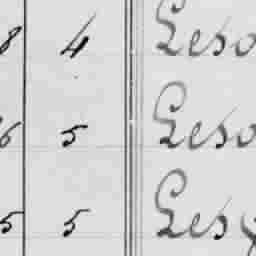 8 4 Leso
6 5 Leso
5 5 Les